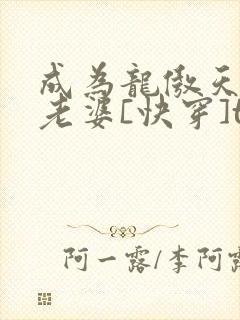 成為龍傲天
老婆[快穿]t
阿一露/李阿露